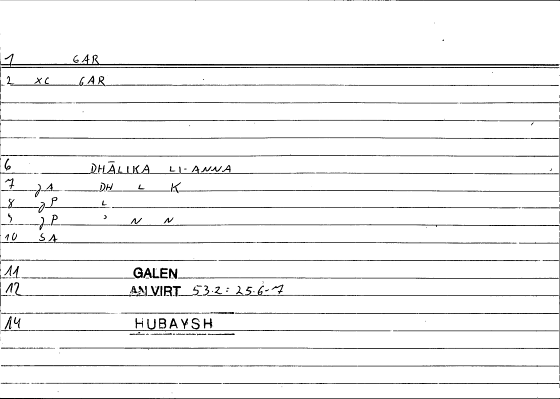 1 GAR
2 XC GAR
6 DHĀLIKA LI-ANNA
7 JA DH L K
8 JP L
9 JP ' N N
10 SA
11 GALEN
12 AN VIRT 53.2: 25.6-7
14 HUBAYSH